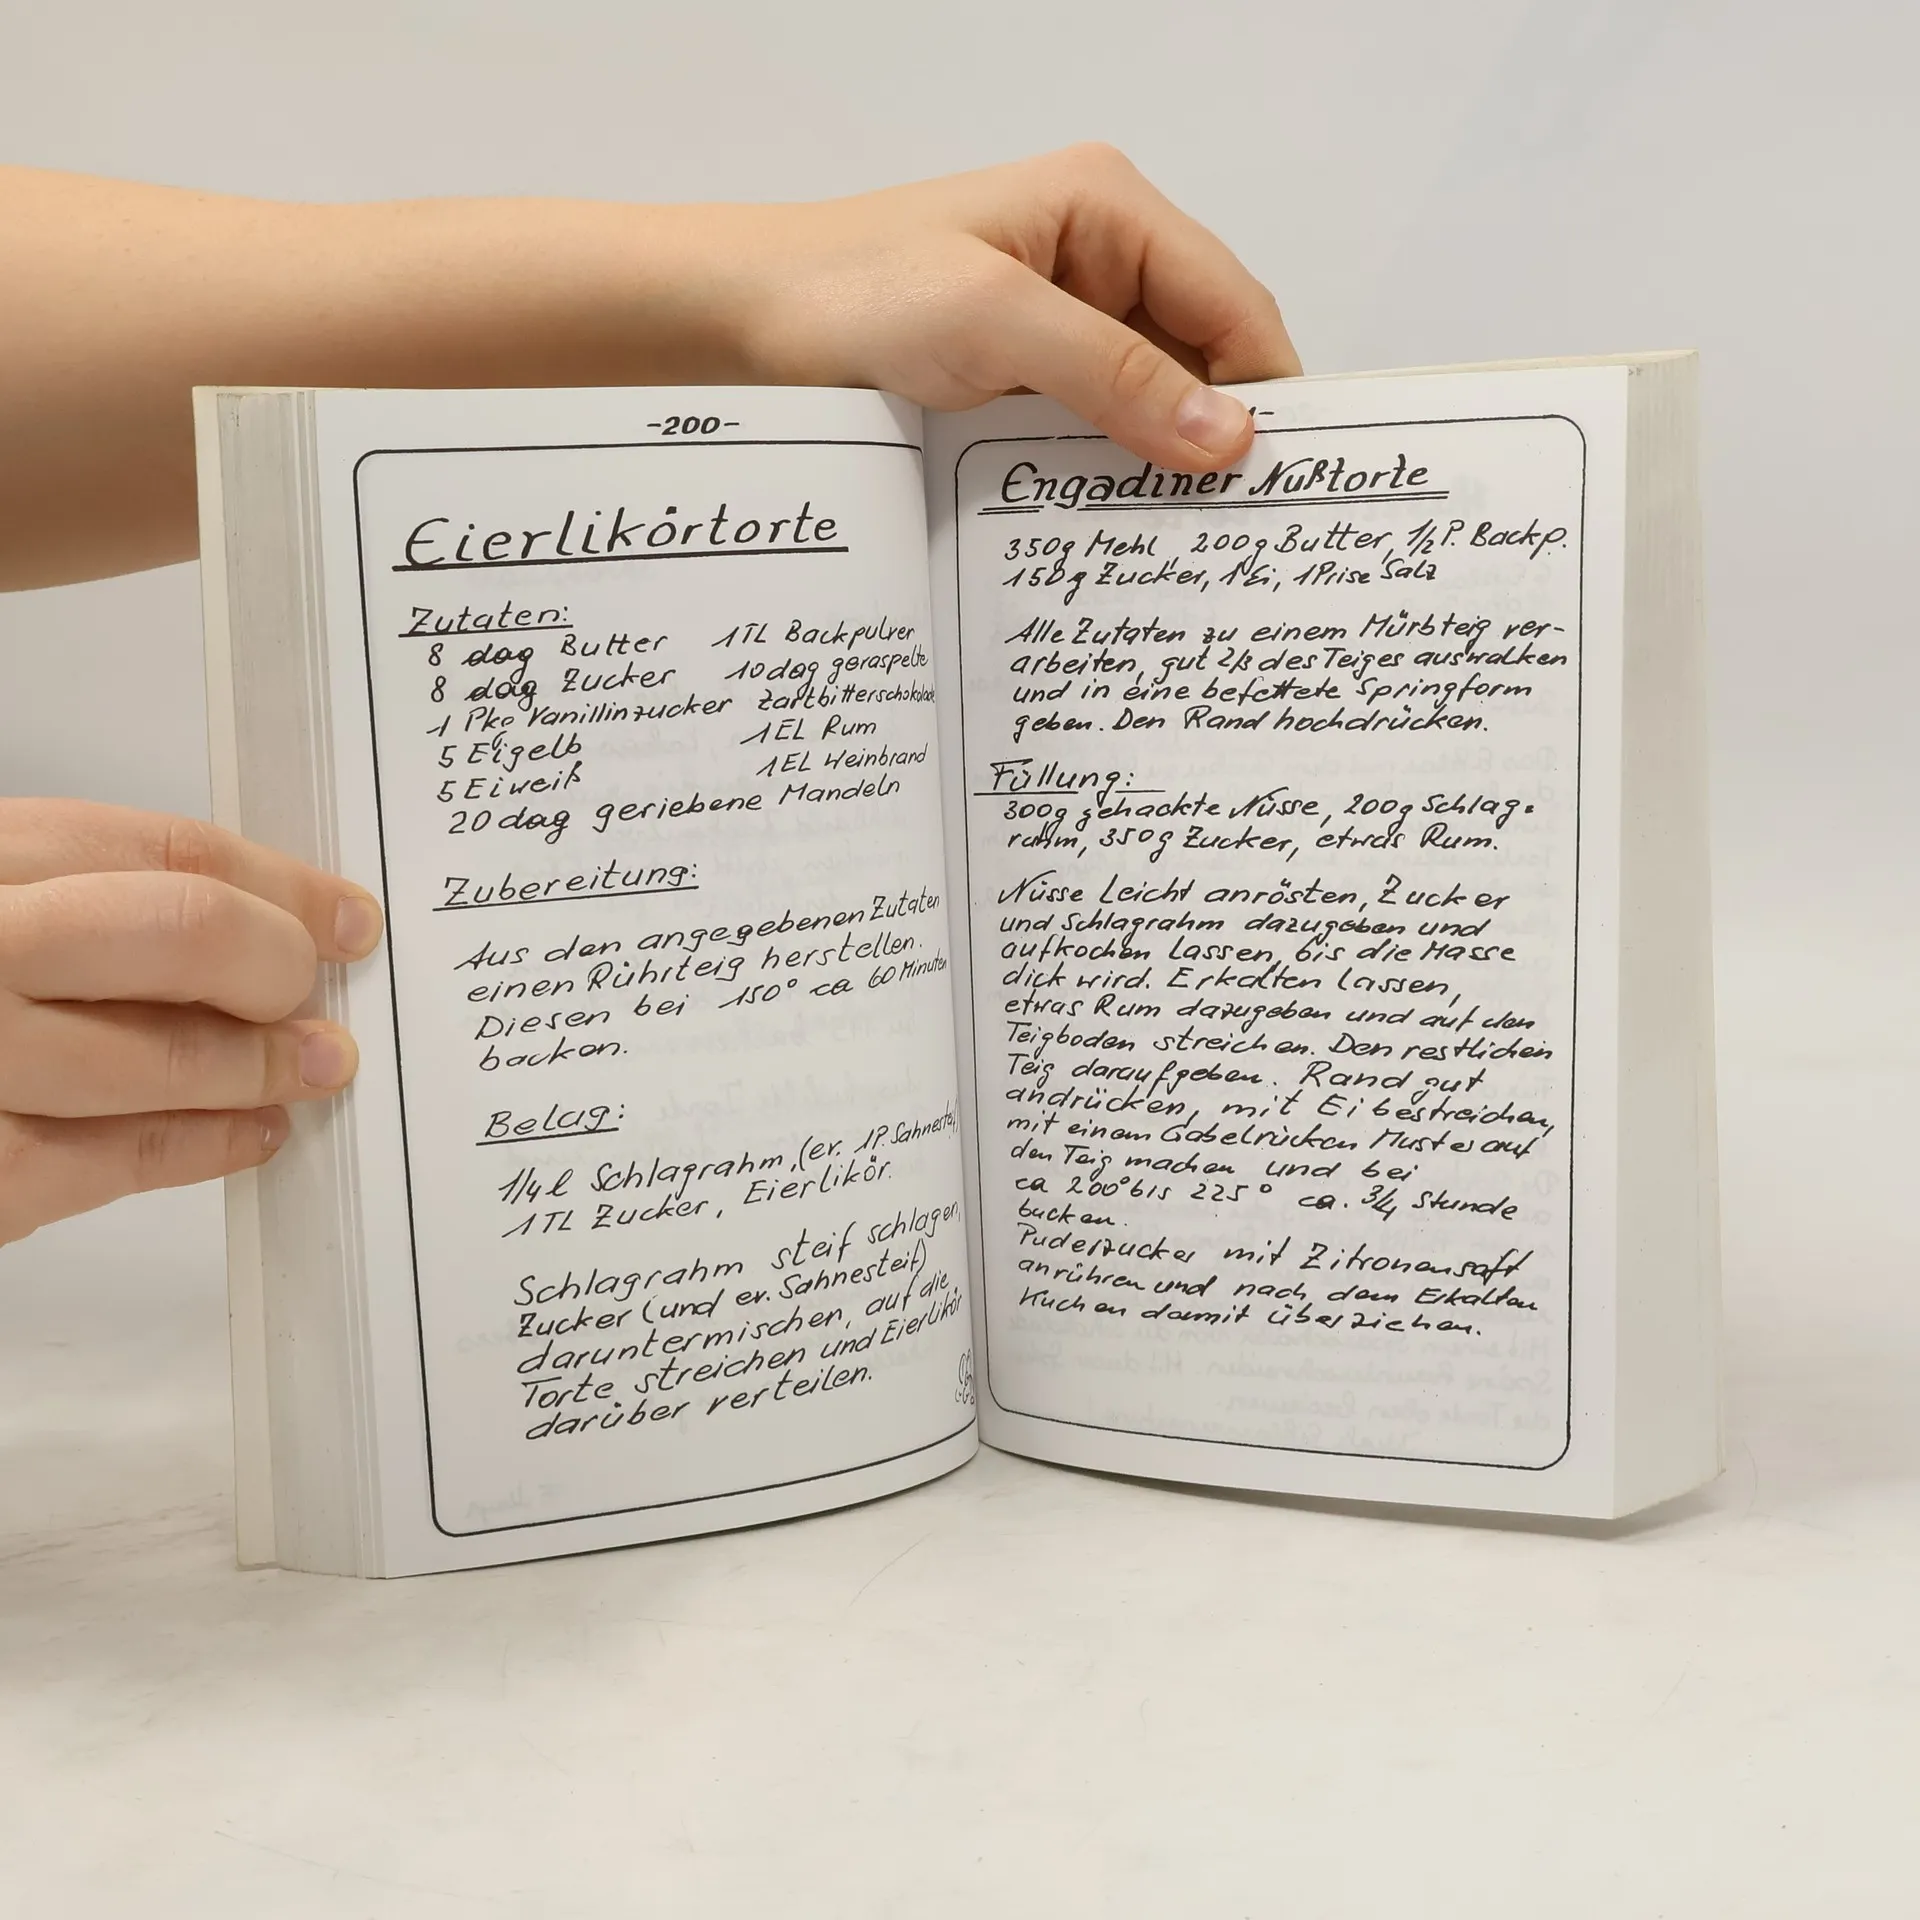 -200-
Eierlikörtorte
Zutaten:
8 dag Butter 1TL Backpulver
8 dag Zucker 10 dag geraspelte
1 Pkg Vanillinzucker Zartbitterschokolade
5 Eigelb 1EL Rum
5 Eiweiß 1EL Weinbrand
20 dag geriebene Mandeln
Zubereitung:
Aus den angegebenen Zutaten
einen Rührteig herstellen.
Diesen bei 150° ca 60 Minuten
backen.
Belag:
1/4 l Schlagrahm, (ev. 1P. Sahnesteif)
1TL Zucker, Eierlikör.
Schlagrahm steif schlagen,
Zucker (und ev. Sahnesteif)
daruntermischen, auf die
Torte streichen und Eierlikör
darüber verteilen.
Engadiner Nußtorte
350g Mehl, 200g Butter, 1/2 P. Backp.
150g Zucker, 1 Ei, 1 Prise Salz
Alle Zutaten zu einem Mürbteig ver-
arbeiten, gut 2/3 des Teiges auswalken
und in eine befettete Springform
geben. Den Rand hochdrücken.
Füllung:
300g gehackte Nüsse, 200g Schlag-
rahm, 350g Zucker, etwas Rum.
Nüsse leicht anrösten, Zucker
und Schlagrahm dazugeben und
aufkochen lassen, bis die Masse
dick wird. Erkalten lassen,
etwas Rum dazugeben und auf den
Teigboden streichen. Den restlichen
Teig daraufgeben. Rand gut
andrücken, mit Ei bestreichen,
mit einem Gabelrücken Muster auf
den Teig machen und bei
ca 200° bis 225° ca. 3/4 Stunde
backen.
Puderzucker mit Zitronensaft
anrühren und nach dem Erkalten
Kuchen damit überziehen.